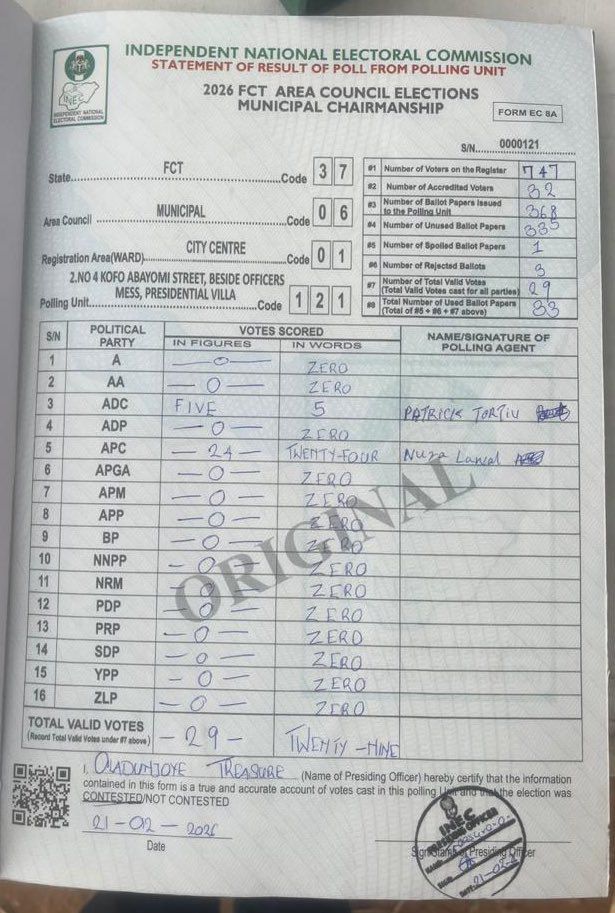 INDEPENDENT NATIONAL ELECTORAL COMMISSION
STATEMENT OF RESULT OF POLL FROM POLLING UNIT
2026 FCT AREA COUNCIL ELECTIONS
MUNICIPAL CHAIRMANSHIP
FORM EC 8A
INEC
INDEPENDENT NATIONAL
ELECTORAL COMMISSION
S/N. 0000121
State FCT Code 3 7
Area Council MUNICIPAL Code 0 6
Registration Area(WARD) CITY CENTRE Code 0 1
2.NO 4 KOFO ABAYOMI STREET, BESIDE OFFICERS
MESS, PRESIDENTIAL VILLA
Polling Unit Code 1 2 1
#1 Number of Voters on the Register 747
#2 Number of Accredited Voters 32
#3 Number of Ballot Papers Issued to the Polling Unit 368
#4 Number of Unused Ballot Papers 335
#5 Number of Spoiled Ballot Papers 1
#6 Number of Rejected Ballots 3
#7 Number of Total Valid Votes (Total Valid Votes cast for all parties) 29
#8 Total Number of Used Ballot Papers (Total of #5 + #6 + #7 above) 33
S/N POLITICAL PARTY VOTES SCORED NAME/SIGNATURE OF POLLING AGENT
IN FIGURES IN WORDS
1 A -0- ZERO
2 AA -0- ZERO
3 ADC FIVE 5 PATRICK TORTIV
4 ADP -0- ZERO
5 APC -24- TWENTY-FOUR Nura Lawal
6 APGA -0- ZERO
7 APM -0- ZERO
8 APP -0- ZERO
9 BP -0- ZERO
10 NNPP -0- ZERO
11 NRM -0- ZERO
12 PDP -0- ZERO
13 PRP -0- ZERO
14 SDP -0- ZERO
15 YPP -0- ZERO
16 ZLP -0- ZERO
ORIGINAL
TOTAL VALID VOTES -29- TWENTY-NINE
(Record Total Valid Votes under #7 above)
I, OLADUNJOYE TREASURE (Name of Presiding Officer) hereby certify that the information
contained in this form is a true and accurate account of votes cast in this polling Unit and that the election was
CONTESTED/NOT CONTESTED
21-02-2026
Date
Presiding Officer
INEC
PRESIDING OFFICER